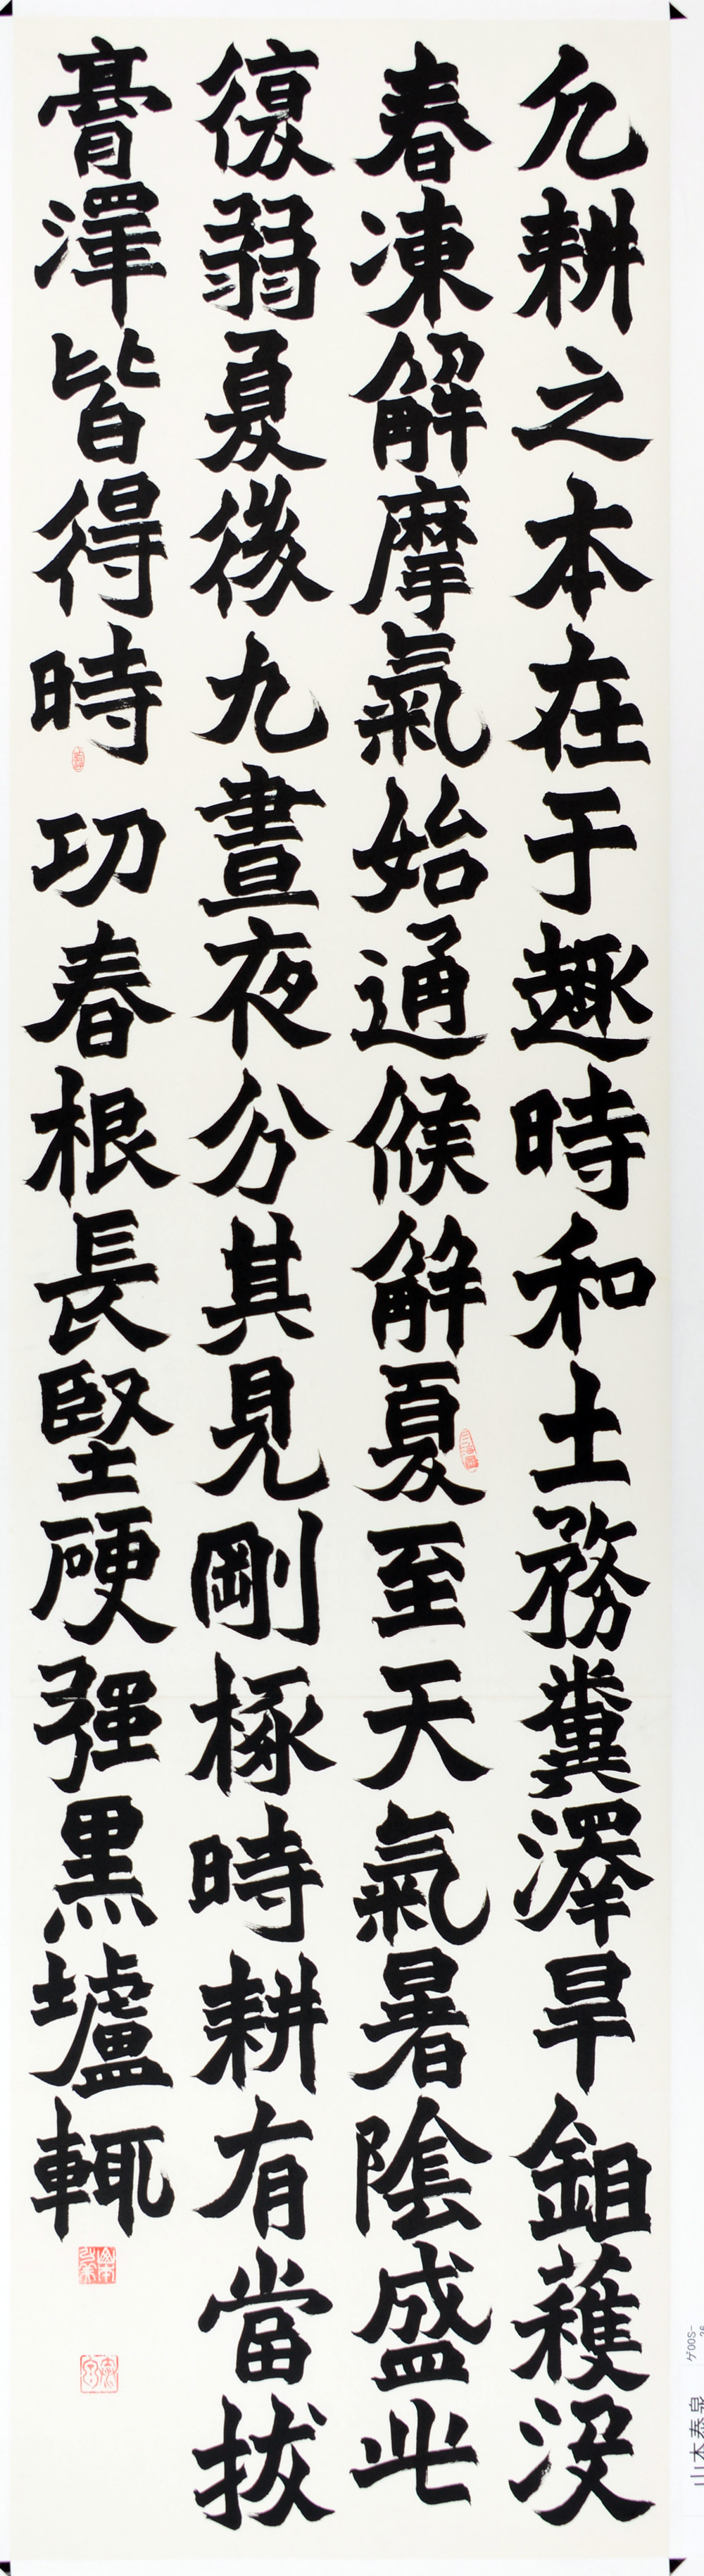 凡耕之本在于趣時和土務糞澤旱鉏穫没
春凍解摩氣始通候解夏至天氣暑陰盛此
復弱夏後九晝夜分其見剛椓時耕有當拔
膏澤皆得時功春根長堅硬强黒壚輒